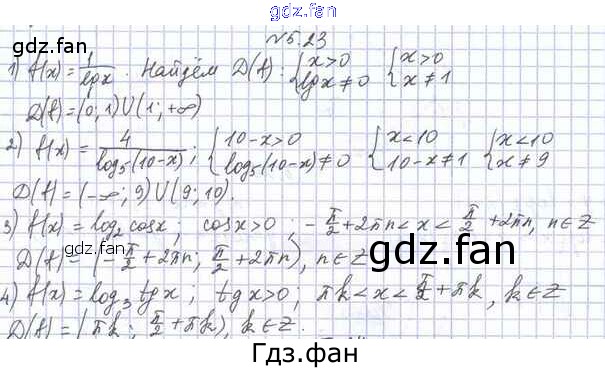 №5.23
gdz.fan
gdz.fan
1) f(x) = 1/lgx . Найдём D(f): { x>0 { x>0
{ lgx≠0 { x≠1
D(f) = (0; 1) ∪ (1; +∞)
2) f(x) = 4/log₅(10-x) ; { 10-x>0 { x<10 { x<10
{ log₅(10-x)≠0 { 10-x≠1 { x≠9
D(f) = (-∞; 9) ∪ (9; 10).
3) f(x) = log₂cosx; cosx>0; -π/2+2πn<x<π/2+2πn, n∈Z
gdz.fan
gdz.fan
D(f) = (-π/2+2πn; π/2+2πn), n∈Z
4) f(x) = log₃tgx; tgx>0; πk<x<π/2+πk, k∈Z
D(f) = (πk; π/2+πk), k∈Z.
Гдз.фан